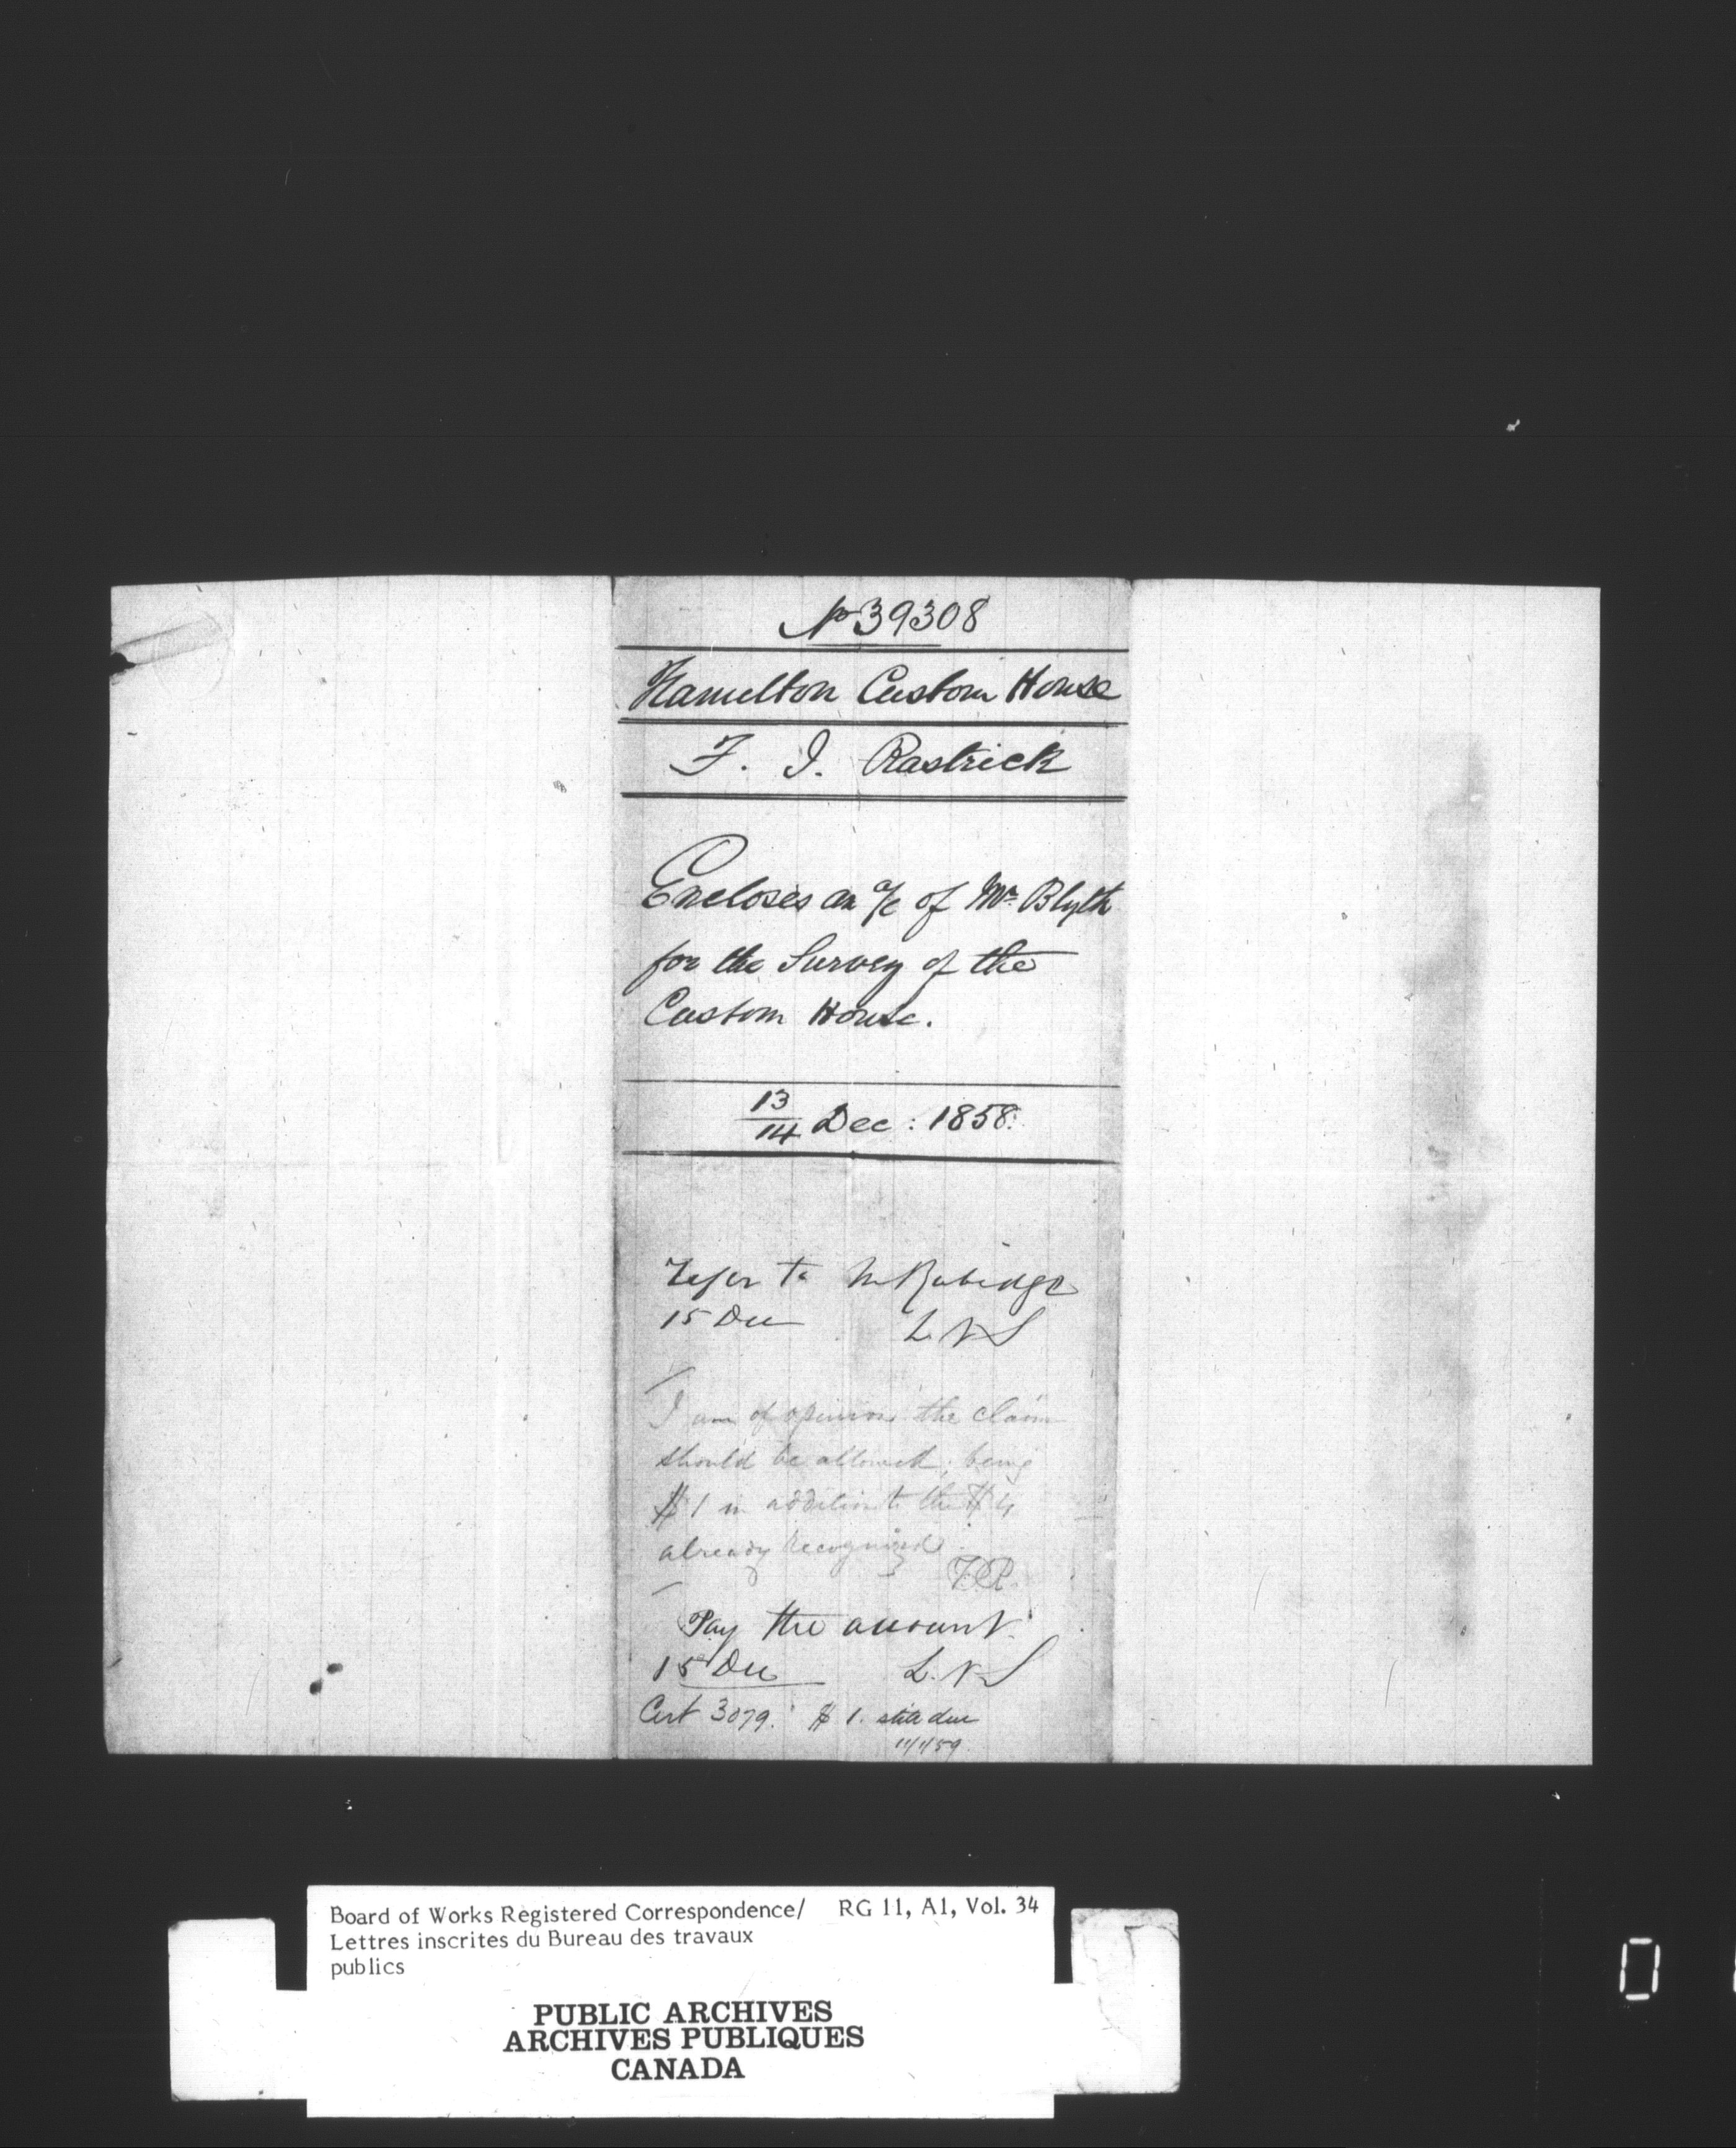 No 39308
Hamilton Custom House
F. J. Rastrick
Encloses an a/c of Mr. Blyth
for the Survey of the
Custom House.
13/14 Dec: 1858.
Refer to Mr Rubidge
15 Dec L.V.S
I am of opinion the claim
should be allowed; being
$1 in addition to the $4
already recognized.
F.P.R.
Pay the amount
15 Dec L.V.S
Cert 3079. $1. still due
11/1/59.
Board of Works Registered Correspondence/ RG 11, A1, Vol. 34
Lettres inscrites du Bureau des travaux
publics
PUBLIC ARCHIVES
ARCHIVES PUBLIQUES
CANADA
0